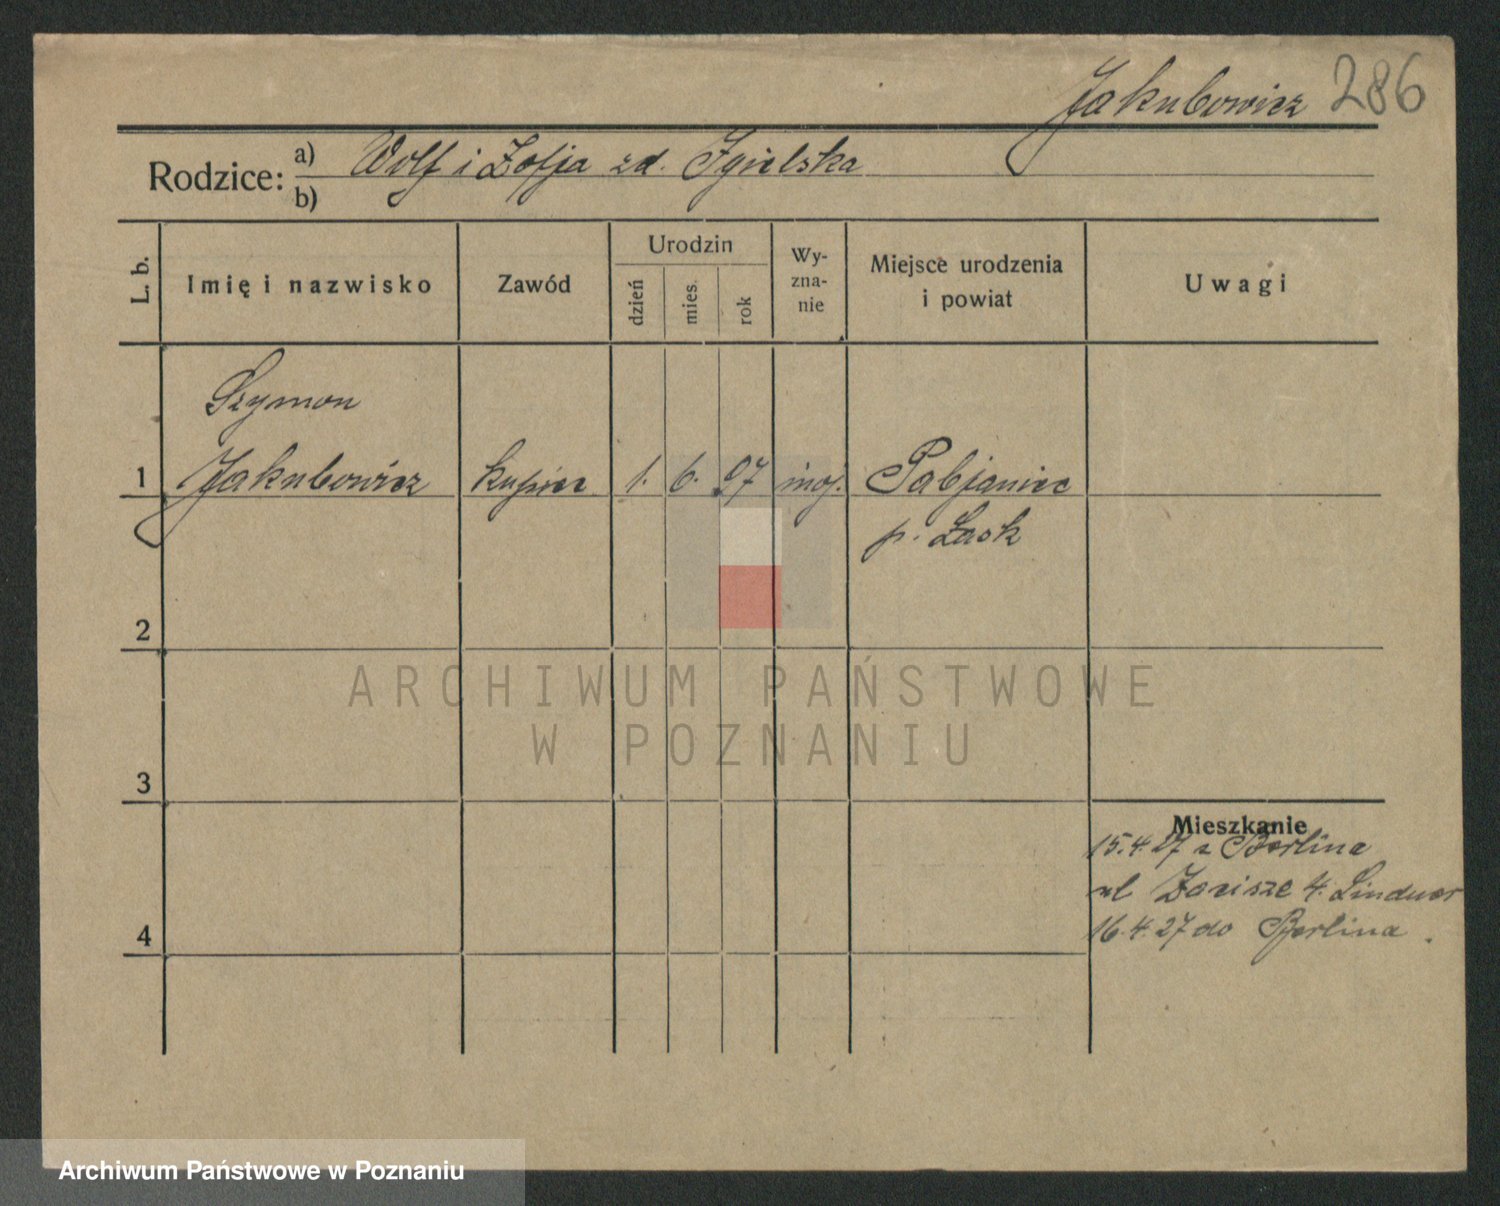 Jakubowicz 286
Rodzice: a) Wolf i Zofja zd. Igielska
b)
L. b. Imię i nazwisko Zawód Urodzin dzień mies. rok Wy-zna-nie Miejsce urodzenia i powiat Uwagi
Szymon
1 Jakubowicz kupiec 1. 6. 97 moj. Pabjanice
p. Łask
2
ARCHIWUM PAŃSTWOWE
W POZNANIU
3
Mieszkanie
15.4.27 z Berlina
4 ul Zacisze 4. Lindner
16.4.27 do Berlina.
Archiwum Państwowe w Poznaniu